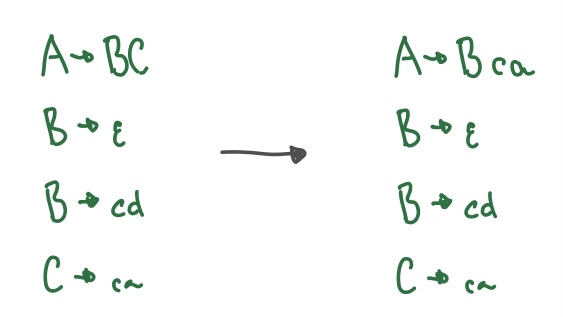 A → BC
B → ε
B → cd
C → ca
A → B ca
B → ε
B → cd
C → ca